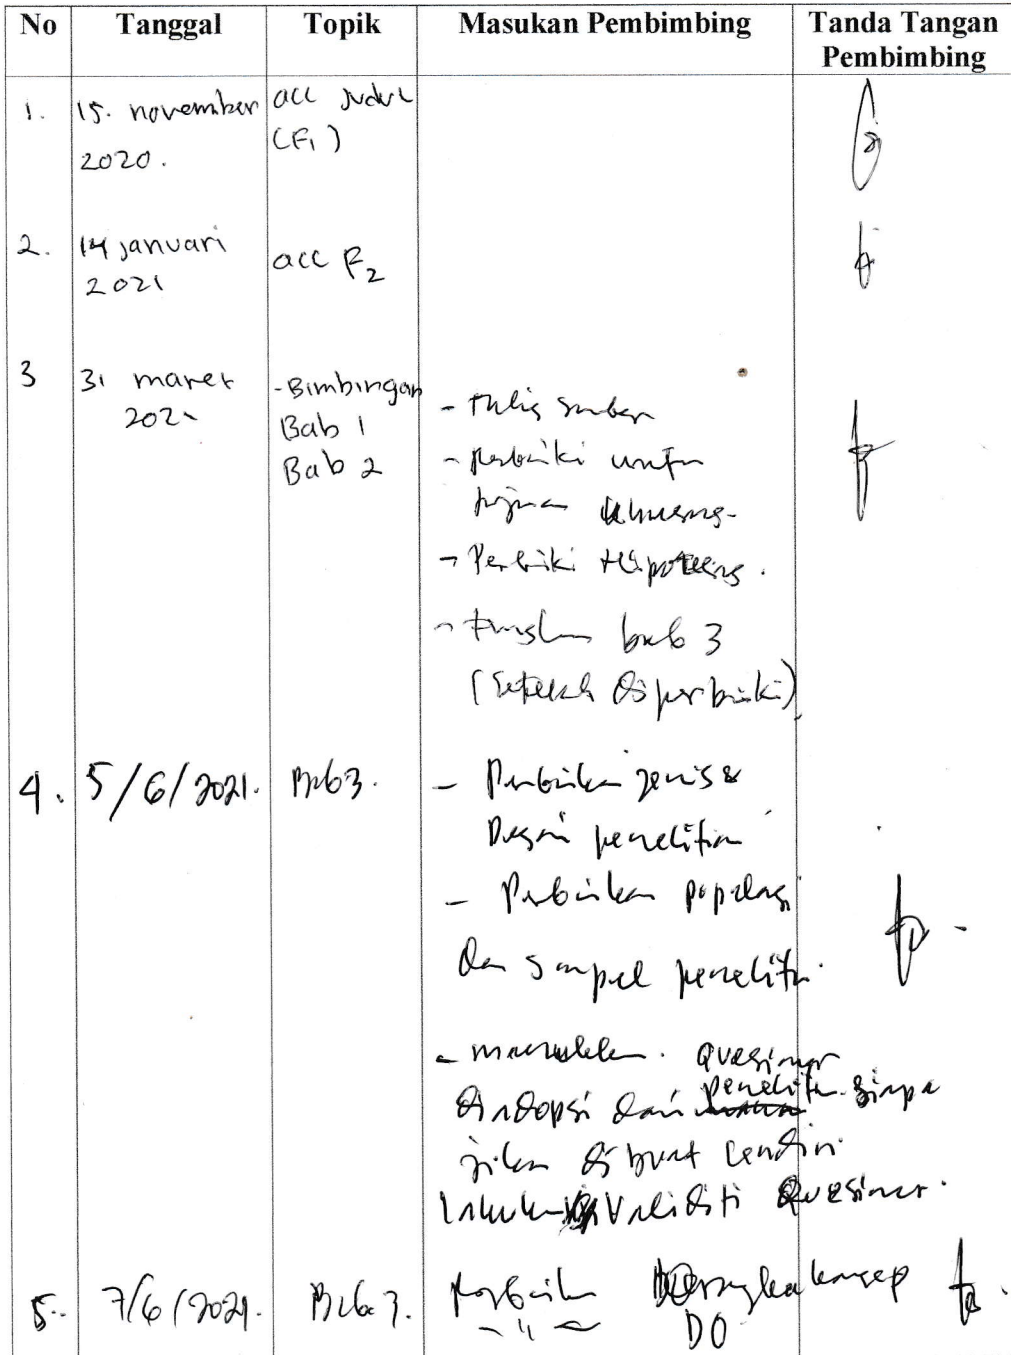 No Tanggal Topik Masukan Pembimbing Tanda Tangan Pembimbing
1. 15. november 2020. acc Judul (F1)
2. 14 januari 2021 acc F2
3 31 maret
-Bimbingan
Bab 1
Bab 2
- tulis sumber
- perbaiki
tujuan
- Perbaiki Hipotesis.
bab 3
(setelah diperbaiki)
4. 5/6/2021. Bab 3.
- Perbaikan jenis &
Desain penelitian
- Perbaikan populasi
dan sampel penelitian.
- quesioner
diadopsi dari penelitian siapa
jika dibuat sendiri
lakukan validiti quesioner.
5. 7/6/2021. Bab 3.
Perbaikan kerangka konsep
- " - DO